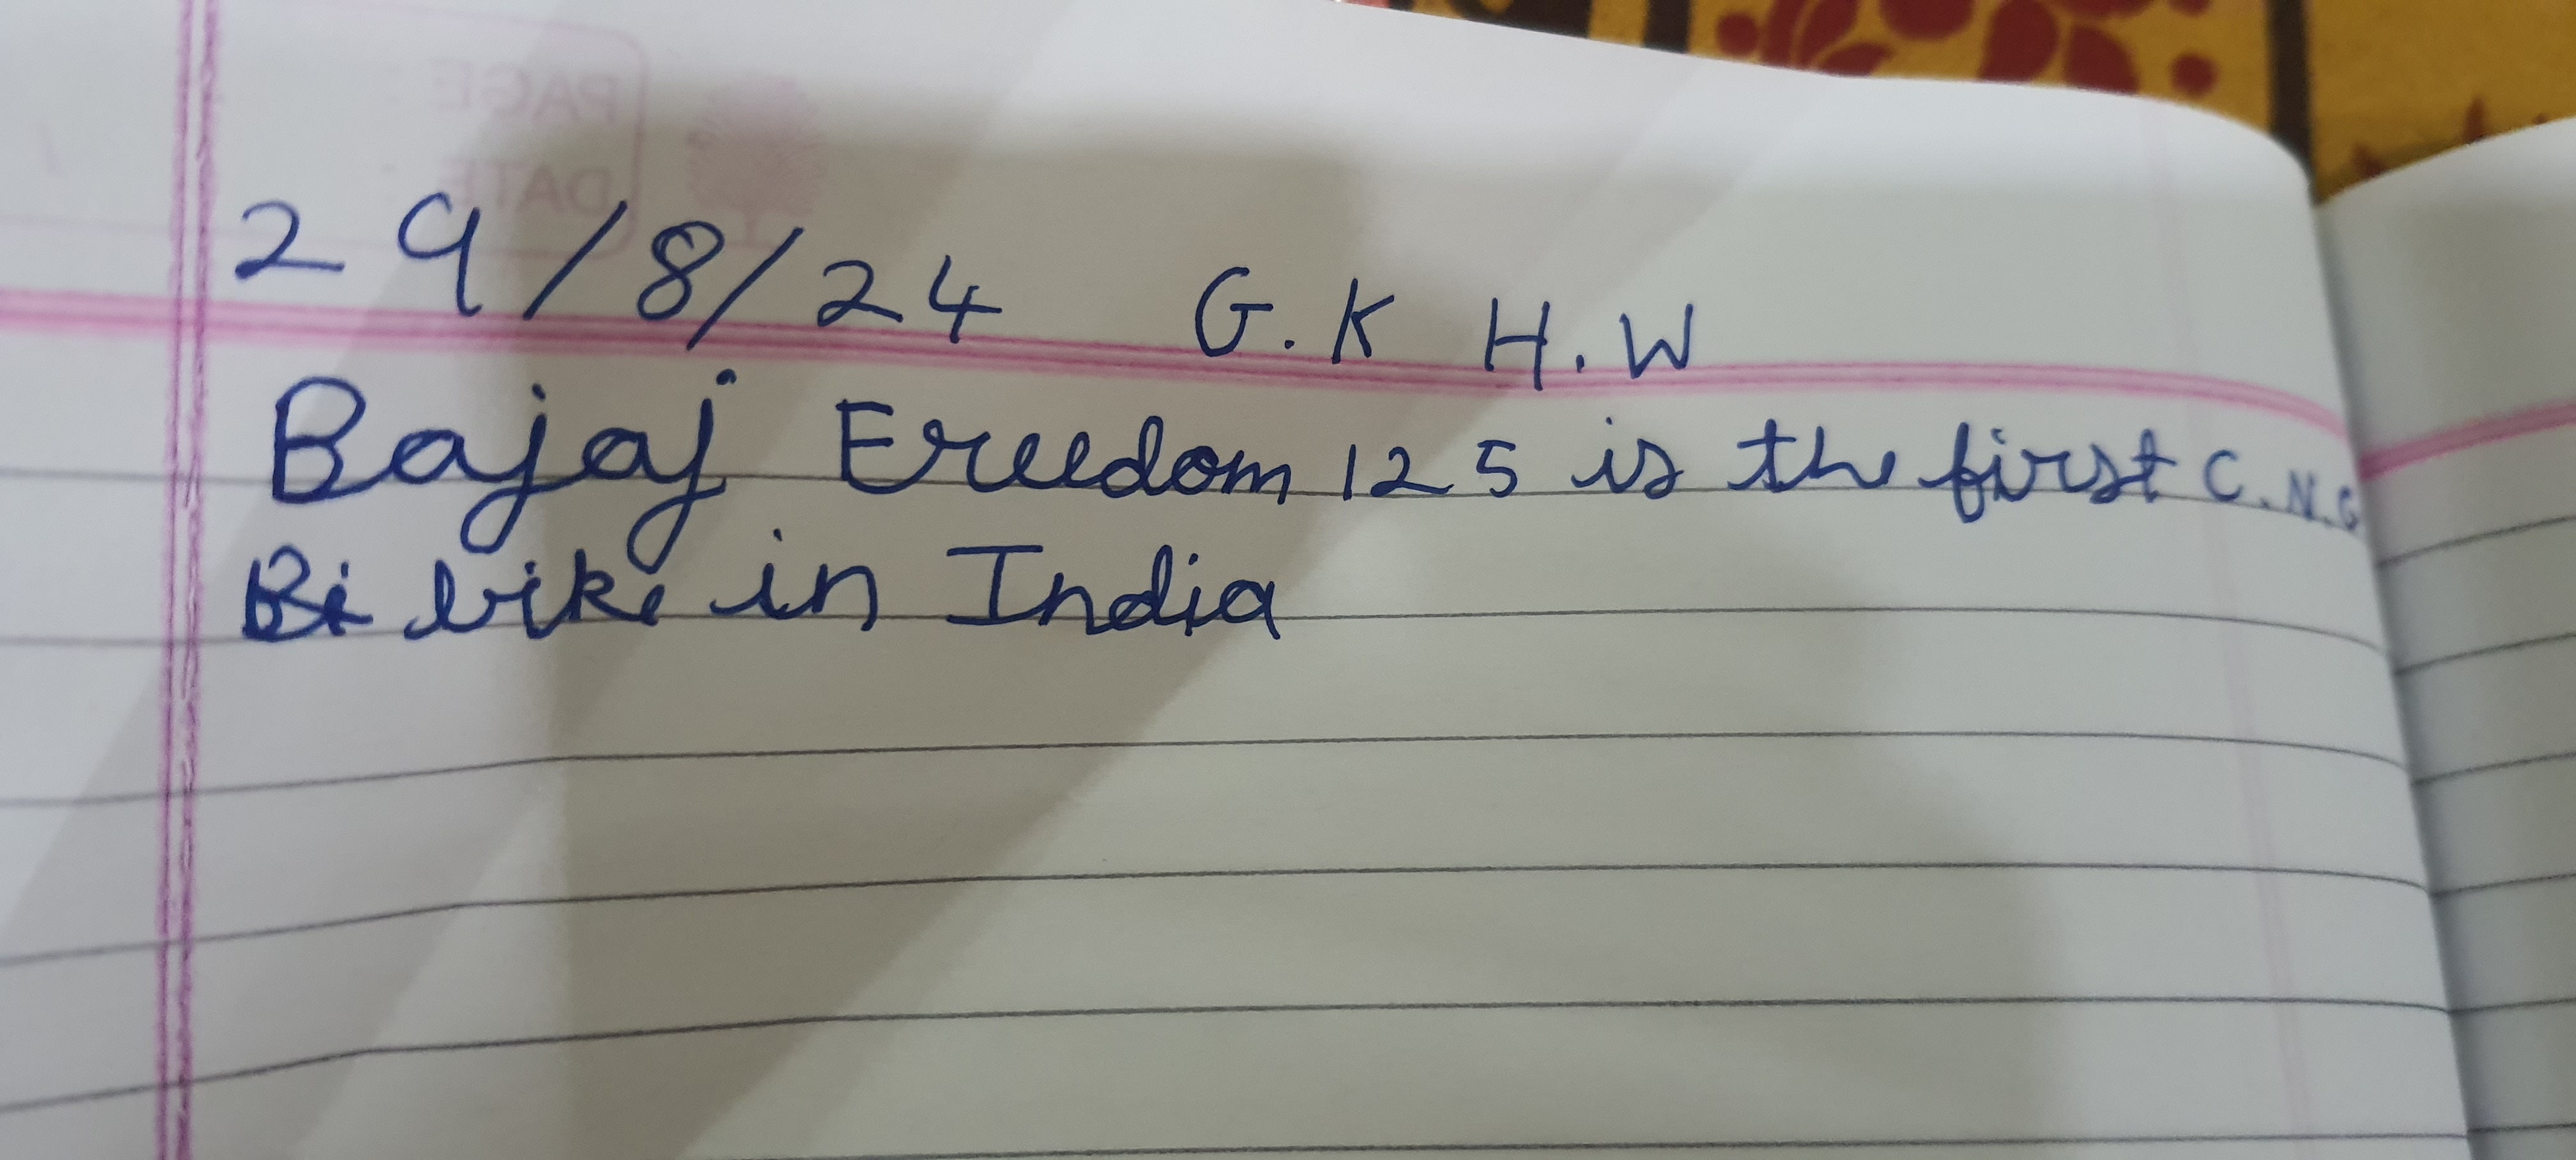 PAGE
DATE
29/8/24 G.K H.W
Bajaj Freedom 125 is the first C.N.G
Bi bike in India